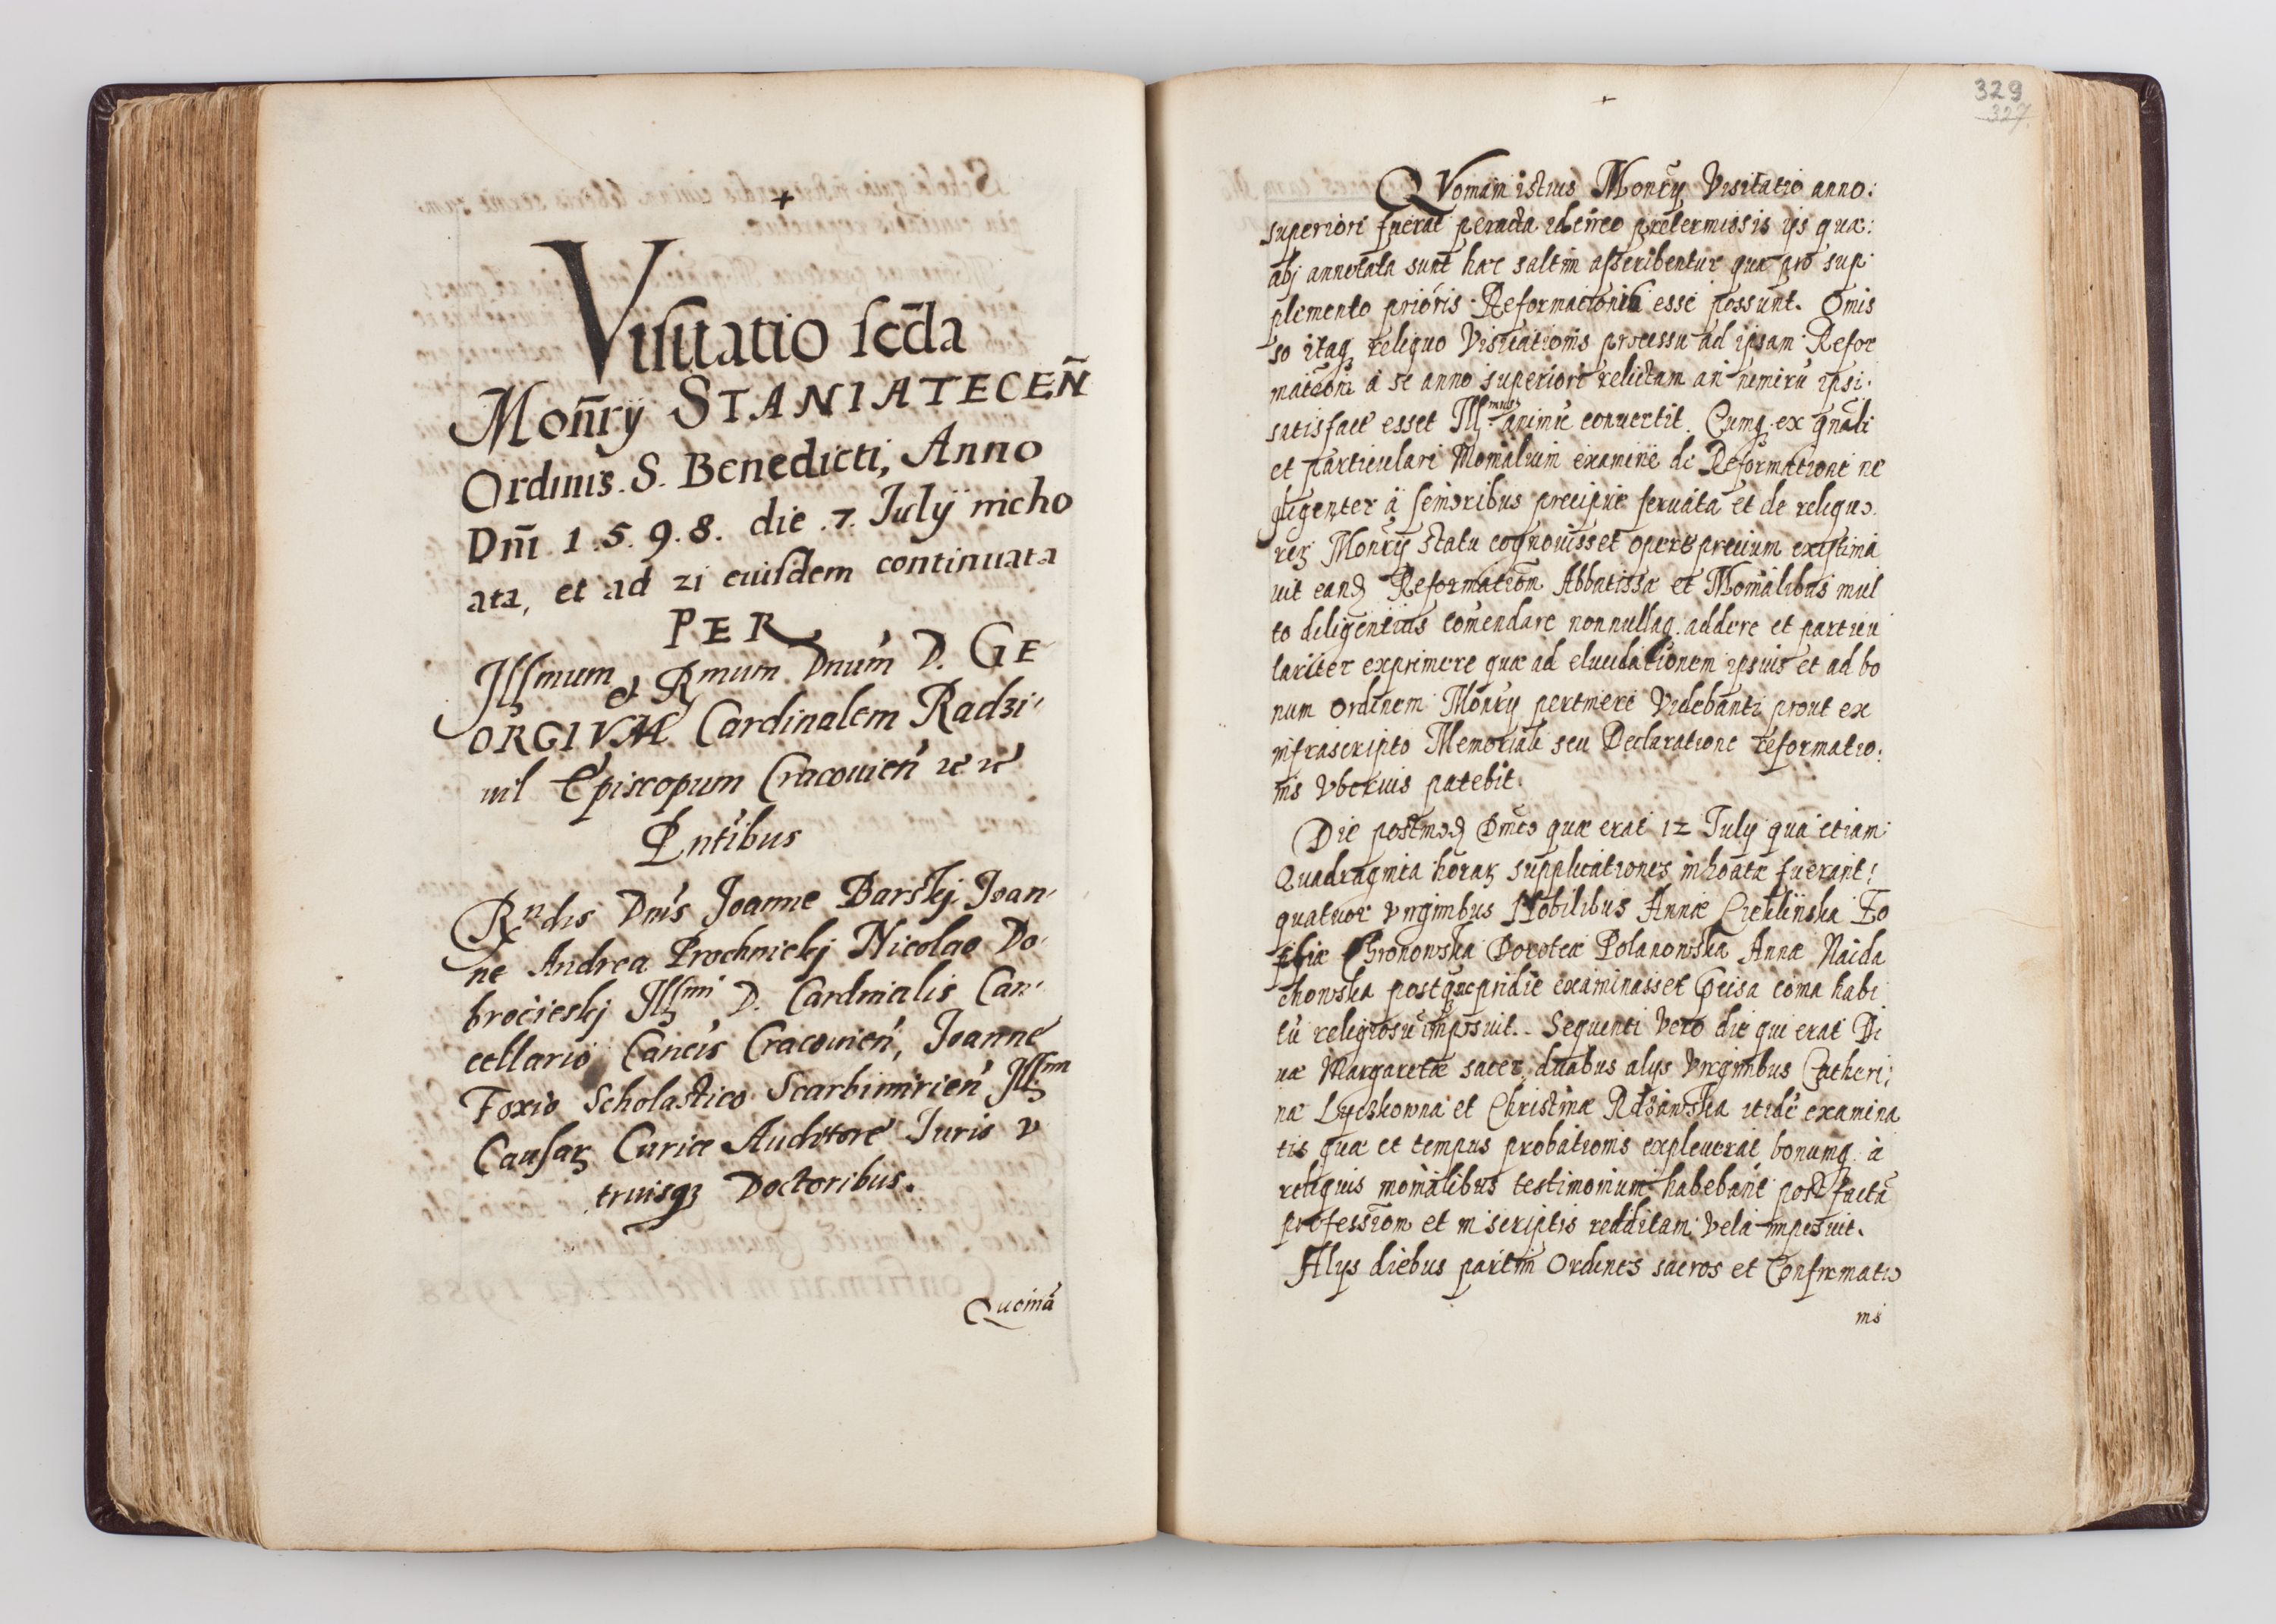 +
Visitatio scd̄a
Mon̄rÿ STANIATECEÑ
Ordinis. S. Benedicti, Anno
Dñi 1.5.9.8. die .7. Julÿ incho
ata, et ad 21 eiusdem continuata
PER
Jllmum et Rmum Dnum D. GE
ORGIVM Cardinalem Radzi
uil Episcopum Cracouień
Pntibus
Rndis Dnis Joanne Barskj Joan
ne Andrea Prochnickj Nicolao Do
brocieskj Jllmi D. Cardinalis Can
cellario Cancis Cracouień, Joanne
Foxio Scholastico Scarbimirień Jllmi
Causaꝝ Curiæ Auditore Juris v
triusqꝫ Doctoribus.
Quoniā
329
327
+
QVoniam istius Monrÿ Visitatio anno
superiori fuerat peracta idcirco prætermissis ijs quæ
ibj annotata sunt hæc saltim asscribentur quæ pro sup
plemento prioris Reformationis esse possunt. Omis
so itaq reliquo Visitationis processu ad ipsam Refor
mationē à se anno superiori relictam an nimirū ipsi
satisfact esset Jllmus animū conuertit. Cumq ex gn̄ali
et particulari Monialium examine de Reformatione ne
gligenter à senioribus præcipue seruata et de reliquo
Monrÿ statu cognouisset operæprecium existima
uit eand Reformation Abbatissæ et Monialibus mul
to diligentius comendare nonnullaq. addere et particu
lariter exprimere quæ ad elucidationem ipsius et ad bo
num ordinem Monrÿ pertinere videbant prout ex
infrascripto Memoriali seu Declaratione reformatio
nis vberius patebit.
Die postmod Dnico quæ erat 12 July qua etiam
Quadraginta horaꝝ supplicationes inhoatæ fuerant
quatuor virginibus Nobilibus Annæ So
phiæ Chronowska Dorotea Polanowska Anna Naida
chowska postquā pridie examinasset coma habi
tū religiosū imposuit. Sequenti vero die qui erat Di
uæ Margaretæ sacer, duabus alijs virginibus Catheri
næ Lyczkowna et Christinæ itidē examina
tis quæ et tempus probationis expleuerāt bonumq à
reliquis monialibus testimonium habebant post factā
profession et in scriptis redditam vela imposuit.
Alys diebus partim Ordines sacros et Confirmatio
nis